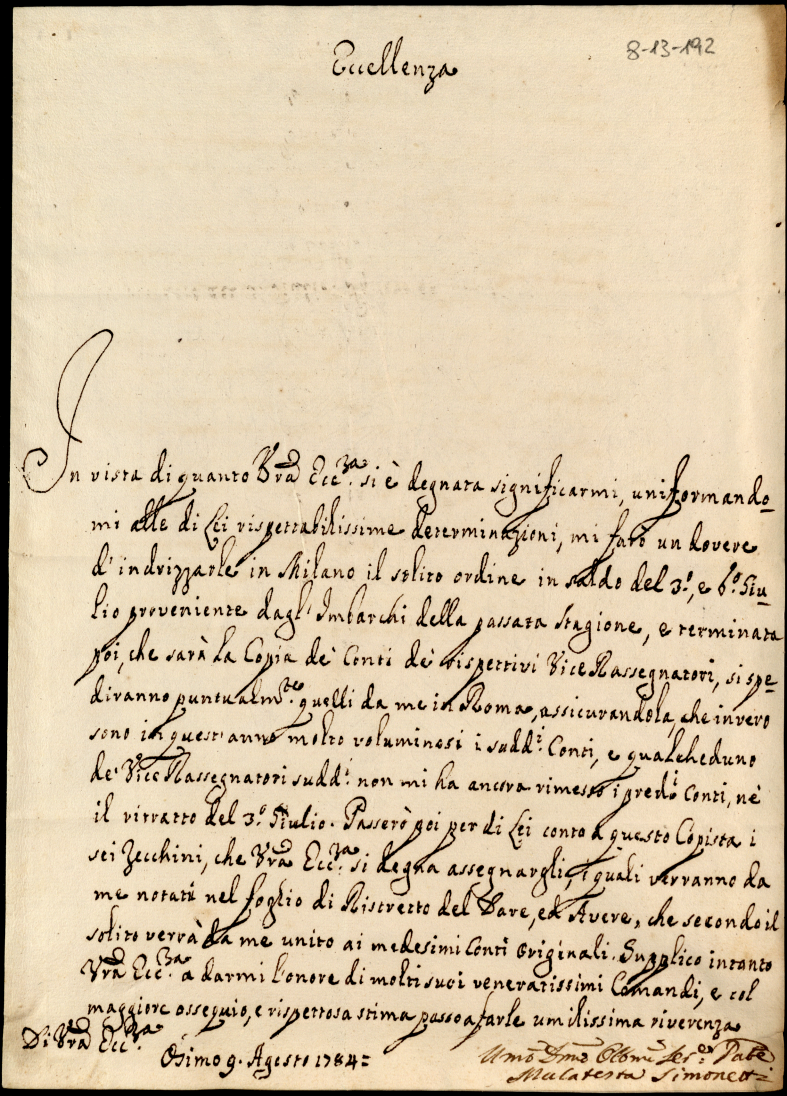 8-13-192
Eccellenza
In vista di quanto Vrã Ecc.za si è degnata significarmi, uniformando=
mi alle di Lei rispettabilissime determinazioni, mi farò un dovere
d'indrizzarle in Milano il solito ordine in saldo del 3.º, e 6.º Giu=
lio proveniente dagl'Imbarchi della passata Stagione, e terminata
poi, che sarà la Copia de' Conti de' rispettivi Vice Rassegnatori, si spe=
diranno puntualm.te quelli da me in Roma, assicurandola, che invero
sono in quest'anno molto voluminosi i sudd.i Conti, e qualcheduno
de' Vice Rassegnatori sudd.i non mi ha ancora rimesso i pred.i Conti, nè
il ritratto del 3.º Giulio. Passerò poi per di Lei conto a questo Copista i
sei Zecchini, che Vrã Ecc.za si degna assegnargli, i quali verranno da
me notati nel foglio di Ristretto del Dare, ed Avere, che secondo il
solito verrà da me unito ai medesimi Conti originali. Supplico intanto
Vrã Ecc.za a darmi l'onore di molti suoi veneratissimi Comandi, e col
maggiore ossequio, e rispettosa stima passo a farle umilissima riverenza
Di Vrã Ecc.za
Osimo 9. Agosto 1784=
Umõ Dmõ Obbmõ Ser.e
Malatesta Simonetti